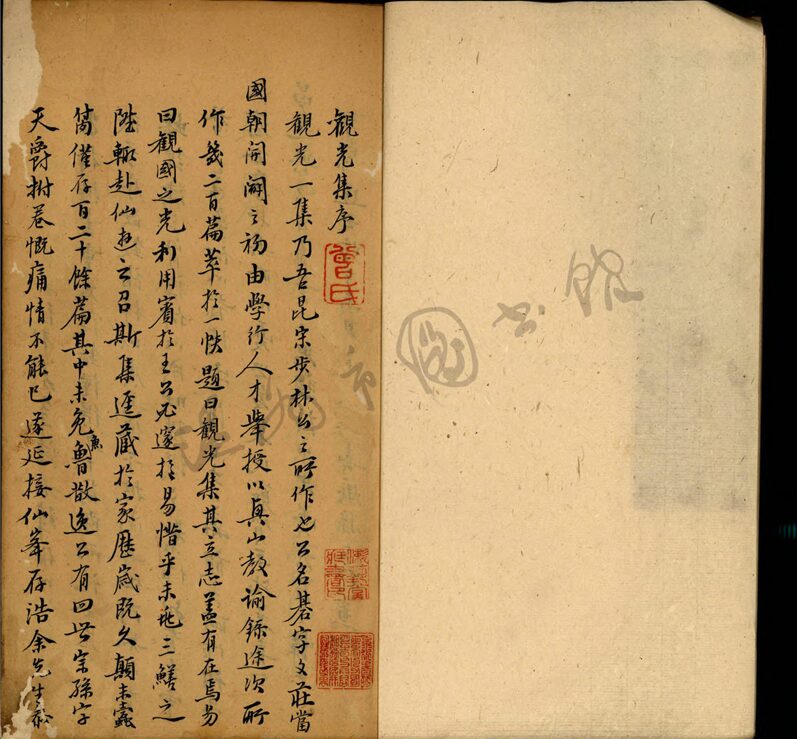 觀光集序
觀光一集乃吾昆宗步林公之所作也公名碁字文莊當
國朝開闢之初由學行人才舉授以真山教諭錄途次所
作幾二百篇萃於一帙題曰觀光集其立志盖有在焉易
曰觀國之光利用賓於王公必邃於易惜乎未兆三鱣之
陞輒赴仙逰之召斯集遂藏於家歷歲既久顛末蠹
僅存百二十餘篇其中未免魯魚散逸公有四世宗孫字
天爵拊卷慨痛情不能已遂延接仙峯存浩余先生
曾氏
圖書館